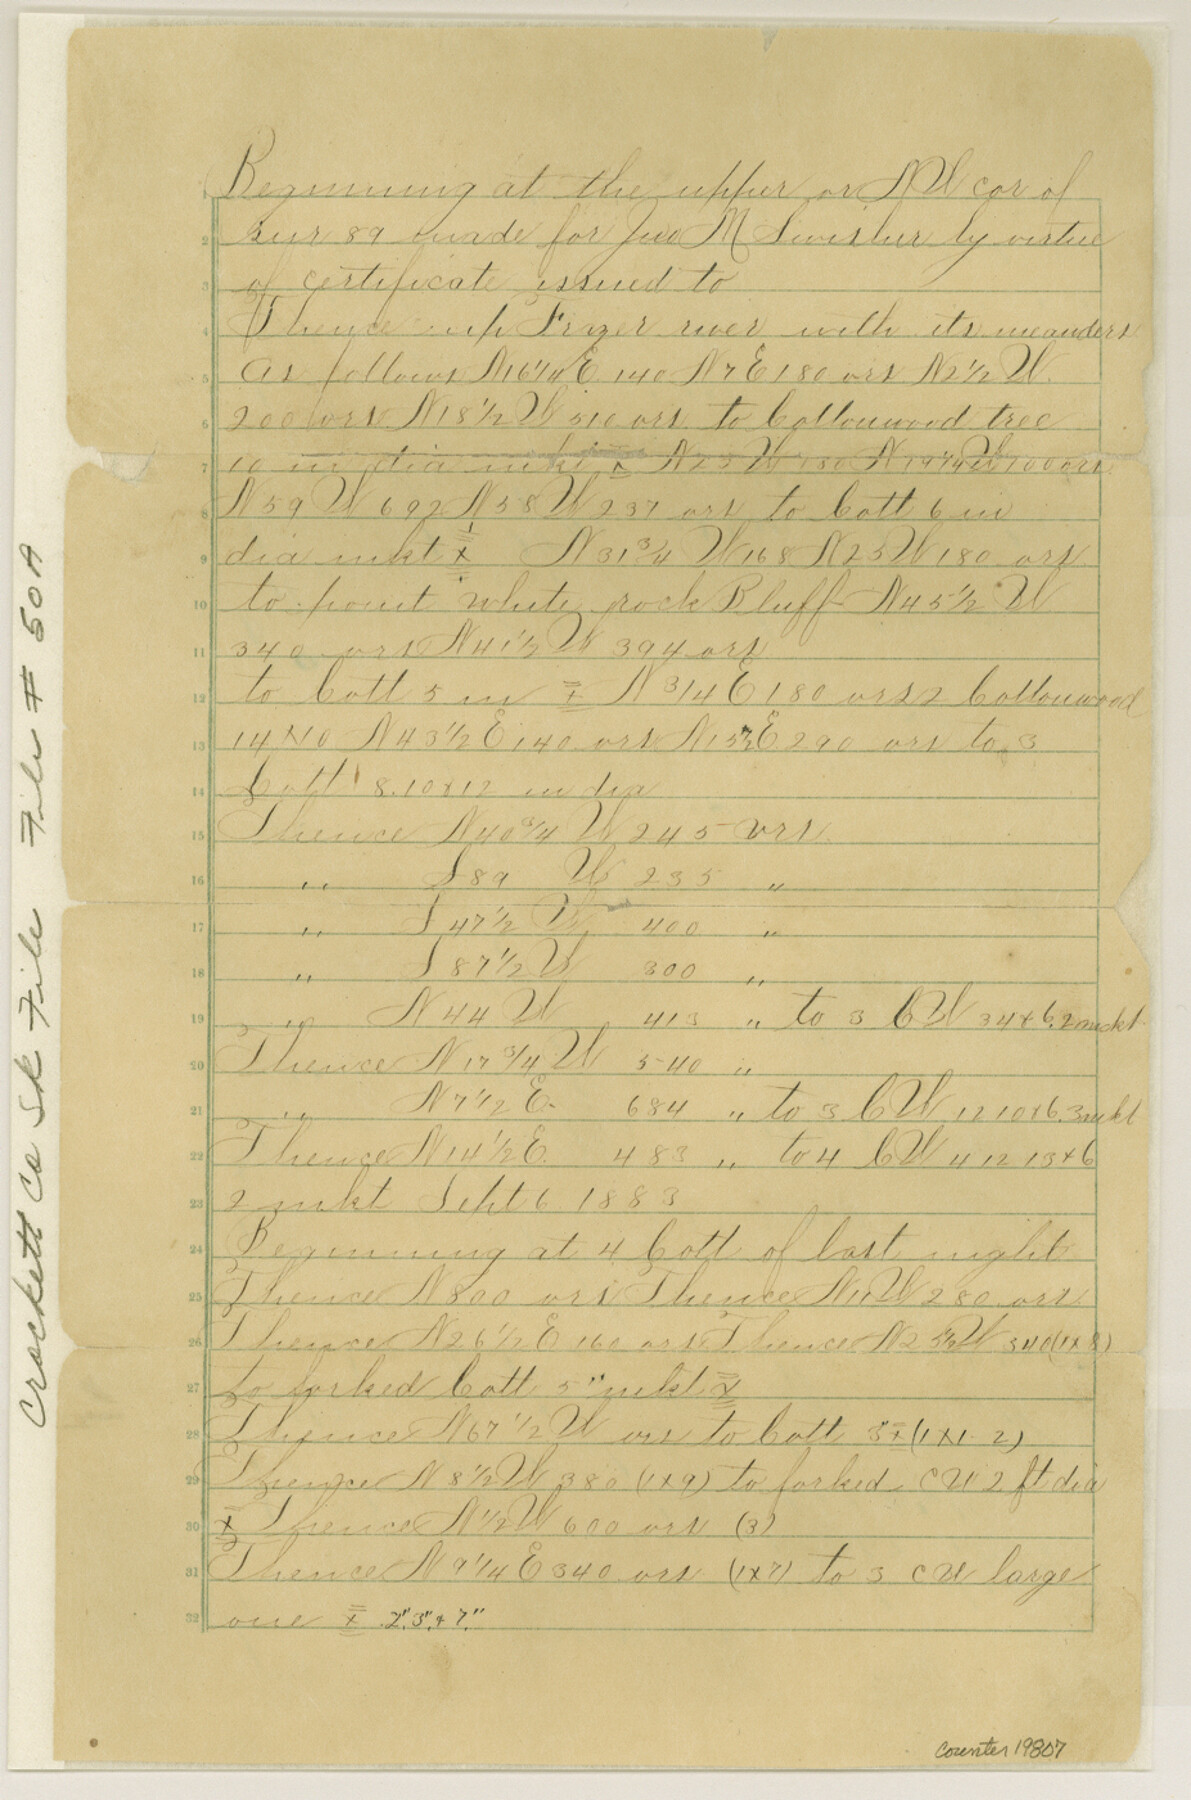 Beginning at the upper or N W cor of
1
2 sur 89 made for Jno M Swisher by virtue
3 of certificate issued to
4 Thence up Frazer river with its meanders
5 as follows N16 1/4 E 140 N 7 E 180 vrs N2 1/2 W
6 200 vrs N18 1/2 W 510 vrs to Cottonwood tree
7 10 in dia mkt x N 25 W 180 N 19 1/4 W 100 vrs
8 N 59 W 692 N 58 W 237 vrs to Cott 6 in
9 dia mkt x N 31 3/4 W 168 N25 W 180 vrs
10 to point white rock Bluff N45 1/2 W
11 340 vrs N41 1/2 W 394 vrs
12 to Cott 5 in x N 3/4 E 180 vrs 2 Cottonwood
13 14 x 10 N43 1/2 E 140 vrs N15 1/2 E 290 vrs to 3
14 Cott 8.10 & 12 in dia
15 Thence N40 3/4 W 245 vrs
16 " S 89 W 235 "
17 " S 47 1/2 W 400 "
18 " S 87 1/2 W 300 "
19 " N 44 W 413 " to 3 C W 34 & 6.2 mckt
20 Thence N 17 3/4 W 540 "
21 " N 7 1/2 E 684 " to 3 C W 12 10 & 6.3 mkt
22 Thence N 14 1/2 E 483 " to 4 C W 4 12 13 & 6
23 2 mkt Sept 6 1883
24 Beginning at 4 Cott of last night
25 Thence N 800 vrs Thence N11 W 280 vrs
26 Thence N26 1/2 E 160 vrs Thence N25 1/2 W 340 (1x8)
27 to forked Cott 5" mkt x
28 Thence N67 1/2 W vrs to Cott 3" x (1x1-2)
29 Thence N 8 1/2 W 380 (1x9) to forked C W 2 ft dia
30 x Thence N 1/2 W 600 vrs (3)
31 Thence N 9 1/4 E 340 vrs (1x7) to 3 C W large
32 one x 2", 3", & 7"
Crockett Co Sk File File # 50A
Counter 19807